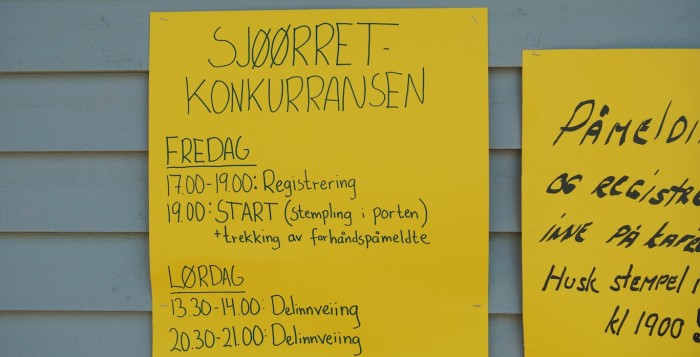 SJØØRRET-
KONKURRANSEN
FREDAG
17.00-19.00: Registrering
19.00: START (stempling i porten)
+trekking av forhåndspåmeldte
LØRDAG
13.30-14.00: Delinnveiing
20.30-21.00: Delinnveiing
OG
INNE PÅ
Husk stempel
kl 1900